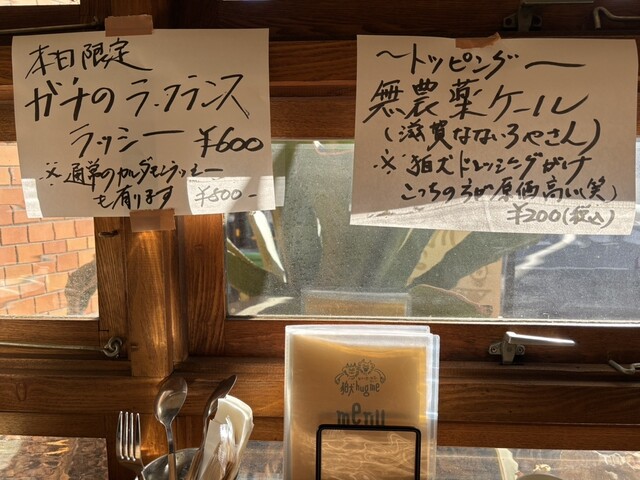 本日限定
ガチのラ・フランス
ラッシー ¥600
※通常のカルダモンラッシー
も有ります ¥500-
～トッピング～
無農薬ケール
(滋賀なないろやさん)
※狛犬ドレッシングがけ
こっちの方が原価高い(笑)
¥200(税込)
狛犬hug me
menu